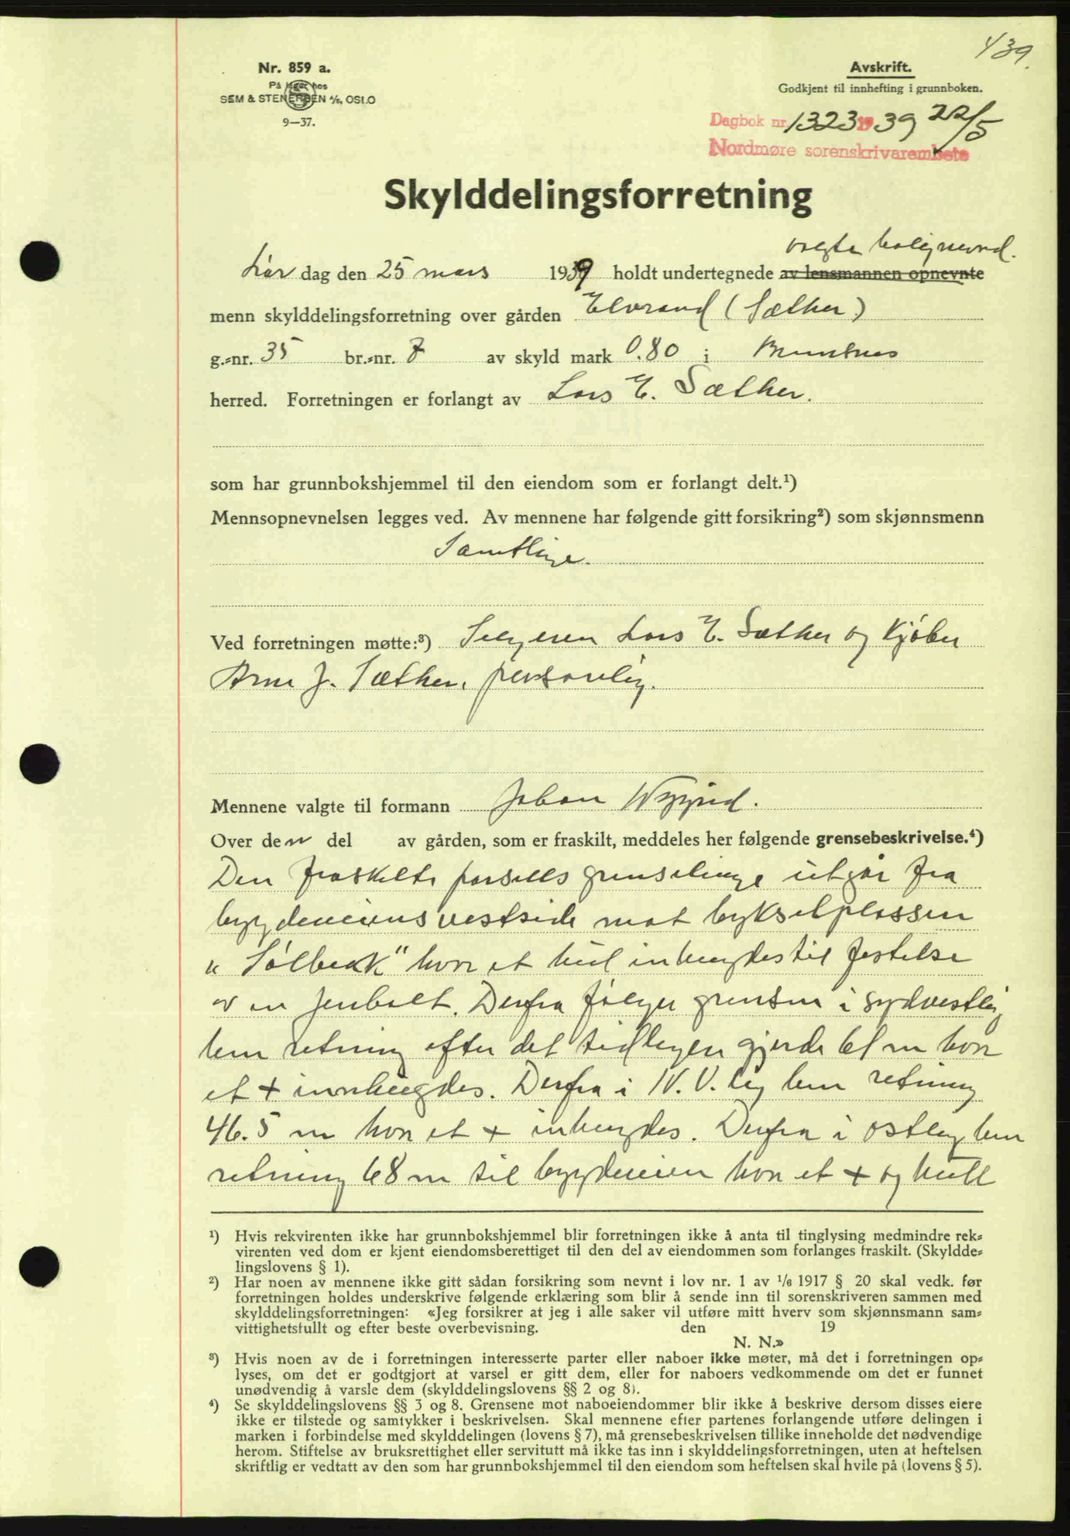 439.
Nr. 859 a.
På lager hos
SEM & STENERSEN A/S, OSLO
9—37.
Avskrift.
Godkjent til innhefting i grunnboken.
Dagbok nr. 1323 1939 22/5
Nordmøre sorenskrivarembete
Skylddelingsforretning
valgte
Lør dag den 25 mars 1939 holdt undertegnede av lensmannen opnevnte
menn skylddelingsforretning over gården Elvrand (Sæther)
g.-nr. 35 br.-nr. 7 av skyld mark 0.80 i
herred. Forretningen er forlangt av Lars E. Sæther.
som har grunnbokshjemmel til den eiendom som er forlangt delt.¹)
Mennsopnevnelsen legges ved. Av mennene har følgende gitt forsikring²) som skjønnsmenn
Samtlige.
Ved forretningen møtte:³) Selgeren Lars E. Sæther og kjøber
Arne J. Sæther, personlig.
Mennene valgte til formann Johan
Over den del av gården, som er fraskilt, meddeles her følgende grensebeskrivelse.⁴)
Den fraskilte parsells grenselinje utgår fra
bygdeveiens vestside mot bykselplassen
"Sølbekk" hvor et hul inhugdes til festelse
av en jenbolt. Derfra følger grensen i sydvestlig
lem retning efter det tidligere gjerde 61 m hvor
et + innhugdes. Derfra i N.V.lig lem retning
46.5 m hvor et + inhugdes. Derfra i østlig lem
retning 68 m til bygdeveien hvor et + og hull
¹) Hvis rekvirenten ikke har grunnbokshjemmel blir forretningen ikke å anta til tinglysing medmindre rek-
virenten ved dom er kjent eiendomsberettiget til den del av eiendommen som forlanges fraskilt. (Skyldde-
lingslovens § 1).
²) Har noen av mennene ikke gitt sådan forsikring som nevnt i lov nr. 1 av 1/6 1917 § 20 skal vedk. før
forretningen holdes underskrive følgende erklæring som blir å sende inn til sorenskriveren sammen med
skylddelingsforretningen: «Jeg forsikrer at jeg i alle saker vil utføre mitt hverv som skjønnsmann sam-
vittighetsfullt og efter beste overbevisning. den 19
N. N.»
³) Hvis noen av de i forretningen interesserte parter eller naboer ikke møter, må det i forretningen op-
lyses, om det er godtgjort at varsel er gitt dem, eller for naboers vedkommende om det er funnet
unødvendig å varsle dem (skylddelingslovens §§ 2 og 8).
⁴) Se skylddelingslovens §§ 3 og 8. Grensene mot naboeiendommer blir ikke å beskrive dersom disses eiere
ikke er tilstede og samtykker i beskrivelsen. Skal mennene efter partenes forlangende utføre delingen i
marken i forbindelse med skylddelingen (lovens § 7), må grensebeskrivelsen tillike inneholde det nødvendige
herom. Stiftelse av bruksrettighet eller servitutt må ikke tas inn i skylddelingsforretningen, uten at heftelsen
skriftlig er vedtatt av den som har grunnbokshjemmel til den eiendom som heftelsen skal hvile på (lovens § 5).